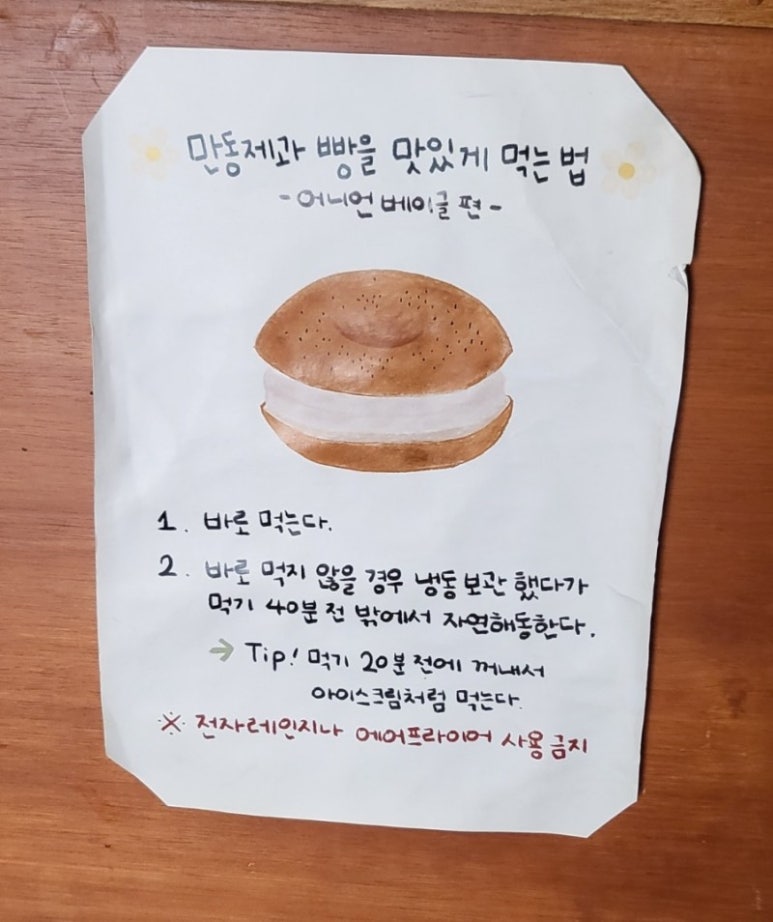 만동제과 빵을 맛있게 먹는 법
-어니언 베이글 편-
1. 바로 먹는다.
2. 바로 먹지 않을 경우 냉동 보관 했다가
먹기 40분 전 밖에서 자연해동한다.
→ Tip! 먹기 20분 전에 꺼내서
아이스크림처럼 먹는다.
※ 전자레인지나 에어프라이어 사용 금지